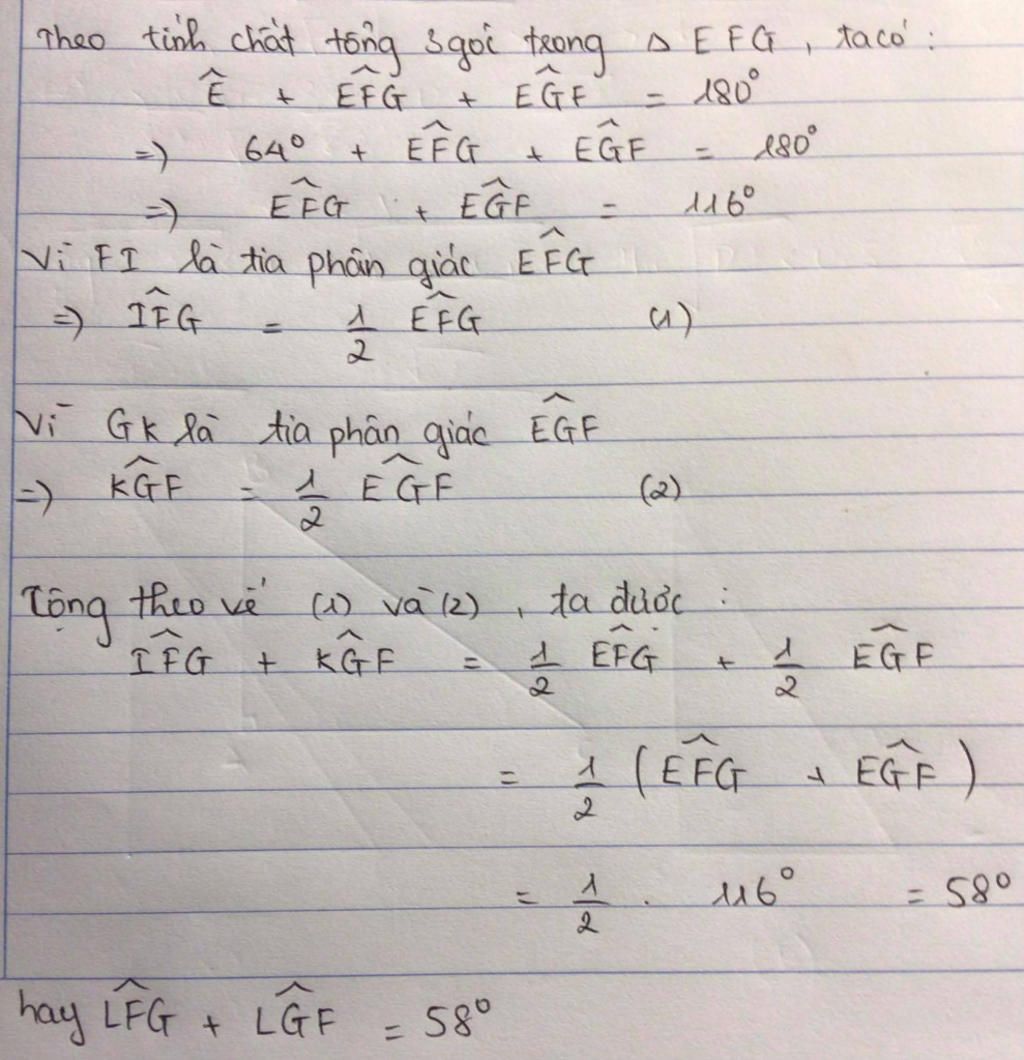 Theo tính chất tổng 3 góc trong Δ EFG, ta có:
Ê + EF̂G + EĜF = 180°
=> 64° + EF̂G + EĜF = 180°
=> EF̂G + EĜF = 116°
Vì FI là tia phân giác EF̂G
=> IF̂G = 1/2 EF̂G (1)
Vì GK là tia phân giác EĜF
=> KĜF = 1/2 EĜF (2)
Cộng theo vế (1) và (2), ta được:
IF̂G + KĜF = 1/2 EF̂G + 1/2 EĜF
= 1/2 (EF̂G + EĜF)
= 1/2 . 116° = 58°
hay LF̂G + LĜF = 58°